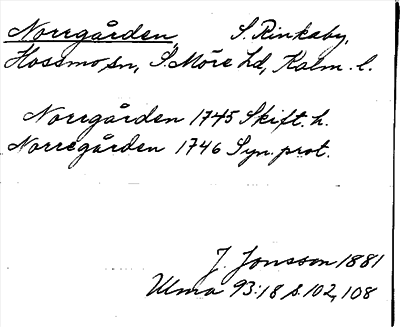 Norrgården, S. Rinkaby,
Hossmo sn, S. Möre hd, Kalm. l.
Norrgården 1745 Skift. h.
Norregården 1746 Syn. prot.
J. Jonsson 1881
Ulma 93:18 s. 102, 108